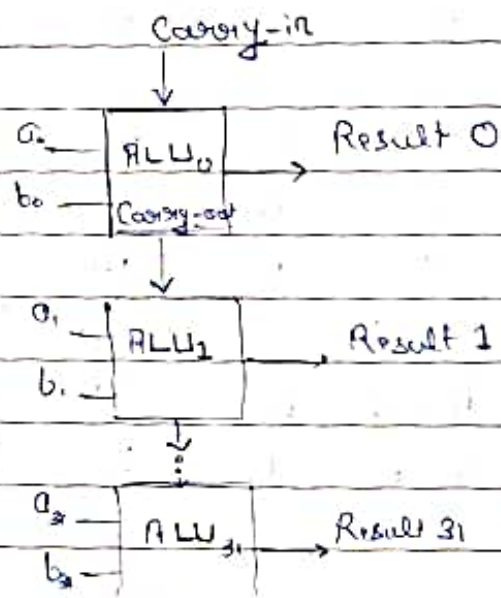 Carry-in
a₀ ALU₀ Result 0
b₀ Carry-out
a₁ ALU₁ Result 1
b₁
a₃₁ ALU₃₁ Result 31
b₃₁